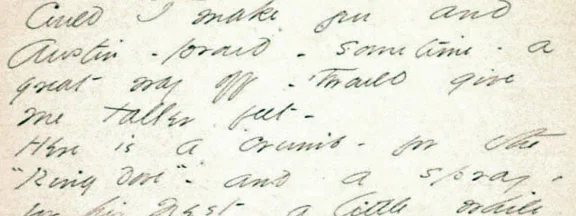 Could I make you and
Austin - proud - sometime - a
great way off - 'twould give
me taller feet -
Here is a crumb - for the
"Ring dove" - and a spray -
for his Nest, a little while